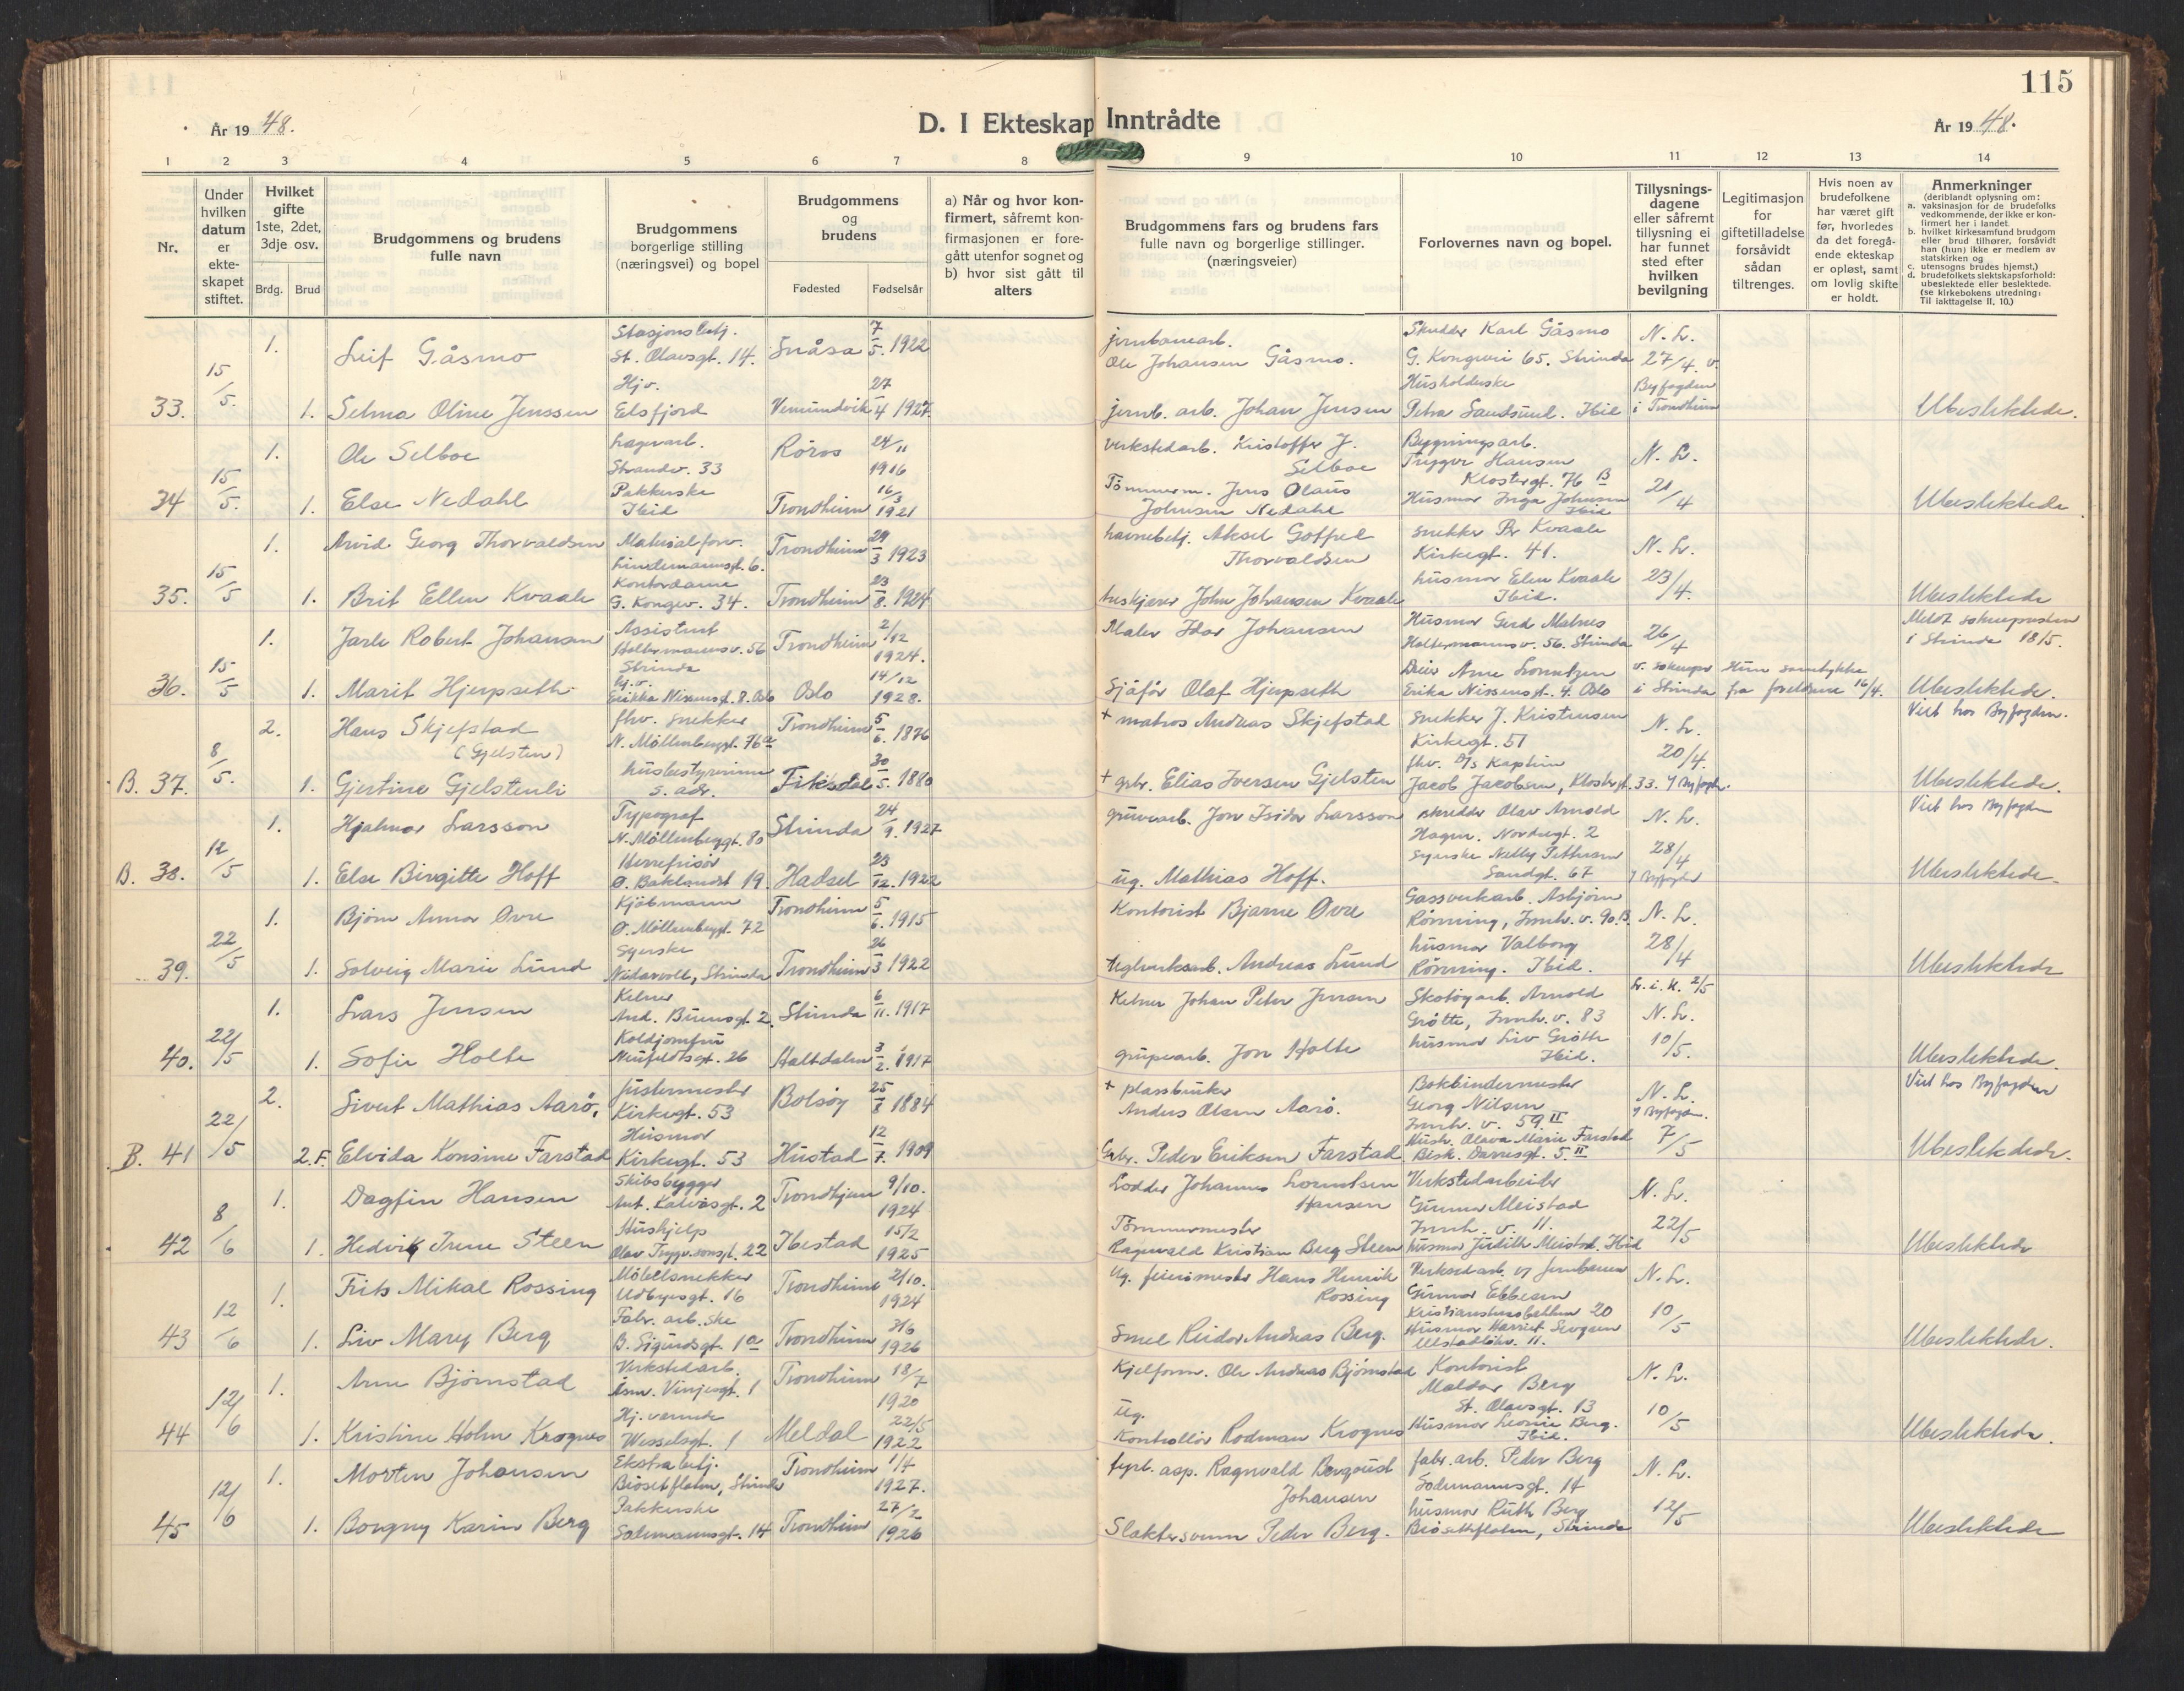 115
År 1948.
D. I Ekteskap Inntrådte
År 1948.
1 2 3 4 5 6 7 8 9 10 11 12 13 14
Nr.
Under hvilken datum er ekte-skapet stiftet.
Hvilket gifte 1ste, 2det, 3dje osv.
Brdg. Brud
Brudgommens og brudens fulle navn
Brudgommens borgerlige stilling (næringsvei) og bopel
Brudgommens og brudens
Fødested Fødselsår
a) Når og hvor kon-firmert, såfremt kon-firmasjonen er fore-gått utenfor sognet og b) hvor sist gått til alters
Brudgommens fars og brudens fars fulle navn og borgerlige stillinger. (næringsveier)
Forlovernes navn og bopel.
Tillysnings-dagene eller såfremt tillysning ei har funnet sted efter hvilken bevilgning
Legitimasjon for giftetilladelse forsåvidt sådan tiltrenges.
Hvis noen av brudefolkene har været gift før, hvorledes da det foregå-ende ekteskap er opløst, samt om lovlig skifte er holdt.
Anmerkninger
(deriblandt oplysning om:
a. vaksinasjon for de brudefolks vedkommende, der ikke er kon-firmert her i landet.
b. hvilket kirkesamfund brudgom eller brud tilhører, forsåvidt han (hun) ikke er medlem av statskirken og
c. utensogns brudes hjemst.)
d. brudefolkets slektskapsforhold: ubeslektede eller beslektede. (se kirkebokens utredning: Til iakttagelse II, 10.)
1. Leif Gåsmo Stasjonsbetj. St. Olavsgt. 14. Snåsa 7/5. 1922 jernbanearb. Ole Johansen Gåsmo. Skredder Karl Gåsmo G. Kongevei 65. Strinda N. L. 27/4. v.
33. 15/5. 1. Selma Oline Jenssen Hjv. Elsfjord Vemundvik 27/4 1927. jernb. arb. Johan Jensen Husholderske Petra Sandsund. Ibid Byfogden i Trondheim Ubeslektede.
1. Ole Selboe Lagerarb. Strandv. 33 Röros 24/11 1916 Verkstedarb. Kristoffer J. Selboe Bygningsarb. Trygve Hansen Klostergt. 76 B N. L.
34 15/5. 1. Else Nedahl Pakkerske Ibid Trondheim 16/3 1921 Tömmerm. Jens Olaus Johnsen Nedahl Husmor Inga Johnsen Ibid 21/4 Ubeslektede.
1. Arvid Georg Thorvaldsen Materialforv. Lindemannsgt. 6. Trondheim 29/3 1923 havnebetj. Aksel Gotfred Thorvaldsen snekker Per Kvaale Kirkegt. 41. N. L.
35. 15/5 1. Brit Ellen Kvaale Kontordame G. Kongev. 34. Trondheim 23/8. 1924 John Johansen Kvaale husmor Elen Kvaale Ibid. 23/4. Ubeslektede
1. Jarle Robert Johansen Assistent Holtermannsv. 56 Strinda Trondheim 2/12 1924. Maler Idar Johansen Husmor Gerd Malnes Holtermannsv. 56. Strinda 26/4 Meldt soknepresten i Strinda 18/5.
36. 15/5 1. Marit Hjerpseth hj.v. Erikka Nissensgt. 8. Oslo Oslo 14/12 1928. Sjåför Olaf Hjerpseth Arne Lorentzen Erika Nissensgt. 4. Oslo v. soknepr. i Strinda Hun samtykke fra foreldrene 16/4. Ubeslektede.
2. Hans Skjefstad (Gjelsten) fhv. snekker N. Möllenberggt. 76a Trondheim 5/6. 1876 + matros Andreas Skjefstad Snekker J. Kristensen Kirkegt. 51 N. L. Viet hos Byfogden.
B. 37. 8/5. 1. Gjertine Gjelstenli husbestyrerinne s. adr. Fiksdal 30/5. 1880 + gbr. Elias Iversen Gjelsten fhv. D/s Kaptein Jacob Jacobsen, Klostergt. 33. 20/4. Ubeslektede.
1. Hjalmar Larsson Typograf N. Möllenberggt. 80 Strinda 24/9. 1927 gruvearb. Jon Isidor Larsson skredder Olav Arnold Hagen. Nordregt. 2 N. L. Viet hos Byfogden
B. 38. 12/5 1. Else Birgitte Hoff Herrefrisör Ø. Baklandet 19. Hadsel 23/12. 1922 ug. Mathias Hoff. Syerske Nelly Pettersen Sandgt. 67 28/4 Ubeslektede.
1. Bjørn Annar Øvre Kjöbmann Ø. Möllenberggt. 72 Trondheim 5/6. 1915 Kontorist Bjarne Øvre Gassverkarb. Asbjørn Rönning, Innh. v. 90.B. N. L.
39. 22/5 1. Solveig Marie Lund Syerske Nidarvoll, Strinda Trondheim 26/3 1922 teglverksarb. Andreas Lund husmor Valborg Rönning. Ibid. 28/4 Ubeslektede
1. Lars Jensen Kelner And. Buensgt. 2. Strinda 6/11. 1917 Kelner Johan Peter Jensen Skotöyarb. Arnold Gråtte, Innh. v. 83 L. i. K. 2/5 N. L.
40. 22/5 1. Sofie Holte Koldjomfru Neufeldtsgt. 26 Haltdalen 3/2. 1917 gruvearb. Jon Holte husmor Liv Gråtte Ibid. 10/5. Ubeslektede.
2. Sivert Mathias Aarö, Justermester Kirkegt. 53 Bolsöy 25/8 1884 + plassbruker Anders Olsen Aarö. Bokbindermester Georg Nilsen Innh. v. 59 II N. L. Viet hos Byfogden
B. 41 22/5 2. F. Elvida Konsine Farstad Husmor Kirkegt. 53 Hustad 12/7. 1909 Gbr. Peder Eriksen Farstad Hush. Olava Marie Farstad Bisk. Darresgt. 5 II 7/5 Ubeslektede.
1. Dagfin Hansen Skibsbygger Ant. Kalvåsgt. 2 Trondhjem 9/10. 1924 Lodder Johannes Lorentsen Hansen Verkstedarbeider Gunnar Meistad Innh. v. 11. N. L.
42 8/6 1. Hedvig Irene Steen Hushjelp Olav Trygv.sonsgt. 22 Ibestad 15/2 1925 Tömmermester Ragnvald Kristian Berg Steen husmor Judith Meistad. Ibid 22/5 Ubeslektede
1. Frits Mikal Rossing Möbelsnekker Udbyesgt. 16 Trondheim 2/10. 1924 Ug. feiermester Hans Henrik Rossing Verkstedarb. v/ Jernbanen Gunnar Ebbesen Kristianstensbakken 20 N. L.
43 12/6 1. Liv Mary Berg Fabr. arb.ske B. Sigurdsgt. 1a Trondheim 1926 Smed Reidar Andreas Berg. Husmor Harriet 11. 10/5 Ubeslektede.
1. Arne Björnstad Verkstedarb. Åsm. Vinjesgt. 1 Trondheim 18/7 1920 Kjelform. Ole Andreas Björnstad Kontorist Meldor Berg St. Olavsgt. 13 N. L.
44 12/6 1. Kristine Holm Krognes Hj. værende Wesselsgt. 1 Meldal 22/5 1922 Ug. Kontrollör Rodman Krognes Husmor Leonie Berg. Ibid. 10/5 Ubeslektede.
1. Morten Johansen Ekstrabetj. Brösetflaten, Strinda Trondheim 1/4 1927. fyrb. asp. Ragnvald Bergquist Johansen fabr. arb. Peder Berg Sodemannsgt. 14 N. L.
45 12/6 1. Borgny Karin Berg Pakkerske Sodemannsgt. 14 Trondheim 27/2 1926 Slaktersvenn Peder Berg. husmor Ruth Berg Brösetflaten, Strinda 12/5 Ubeslektede